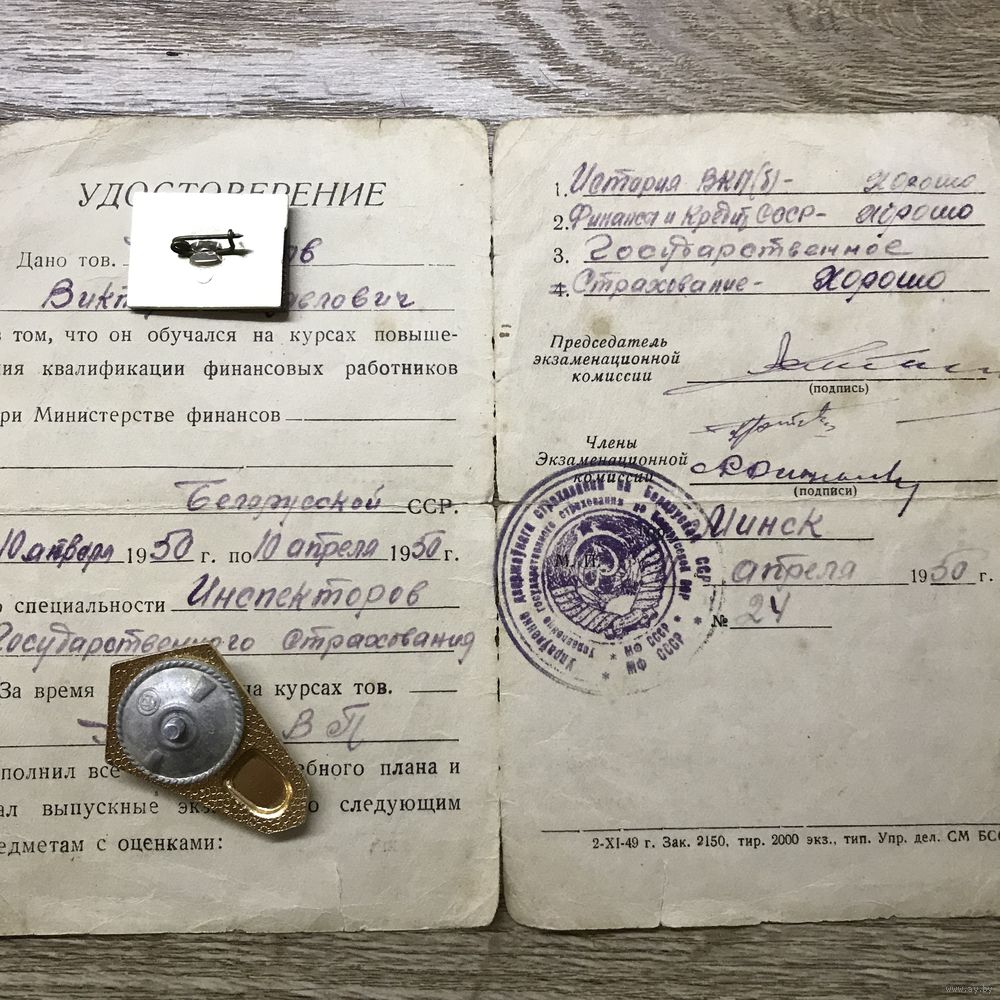 УДОСТОВЕРЕНИЕ
Дано тов.
в том, что он обучался на курсах повыше-
ния квалификации финансовых работников
при Министерстве финансов
Белорусской ССР.
10 января 1950 г. по 10 апреля 1950 г.
по специальности Инспекторов
Государственного страхования
За время на курсах тов.
В П
полнил все ебного плана и
ал выпускные эк о следующим
едметам с оценками:
1. История ВКП(б)- хорошо
2. Финансы и Кредит СССР- хорошо
3. Государственное
4. Страхование- хорошо
Председатель
экзаменационной
комиссии
(подпись)
Члены
Экзаменационной
комиссии
(подписи)
М. П.
Минск
апреля 1950 г.
№ 24
Управление государственного страхования по Белорусской ССР
МФ СССР
2-XI-49 г. Зак. 2150, тир. 2000 экз., тип. Упр. дел. СМ БСС
www.ay.by